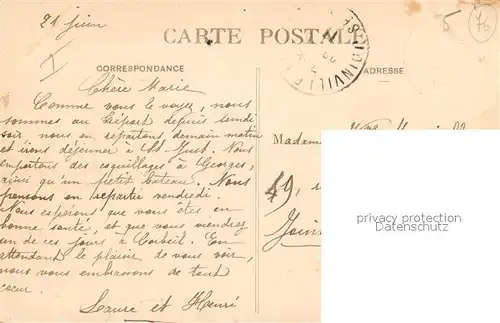 21 juin
CARTE POSTALE
5
70
CORRESPONDANCE
ADRESSE
JOINVILLE
Chère Marie
Comme vous le voyez, nous
sommes au Tréport depuis lundi
soir, nous en repartons demain matin
et irons déjeuner à St-Just. Nous
emportons des coquillages à Georges,
ainsi qu'un petit bateau. Nous
pensons en repartir vendredi.
Nous espérons que vous êtes en
bonne santé, et que vous viendrez
un de ces jours à Corbeil. En
attendant le plaisir de vous voir,
nous vous embrassons de tout
cœur.
Laure et Henri
Madam
49, r
Join
privacy protection
Datenschutz